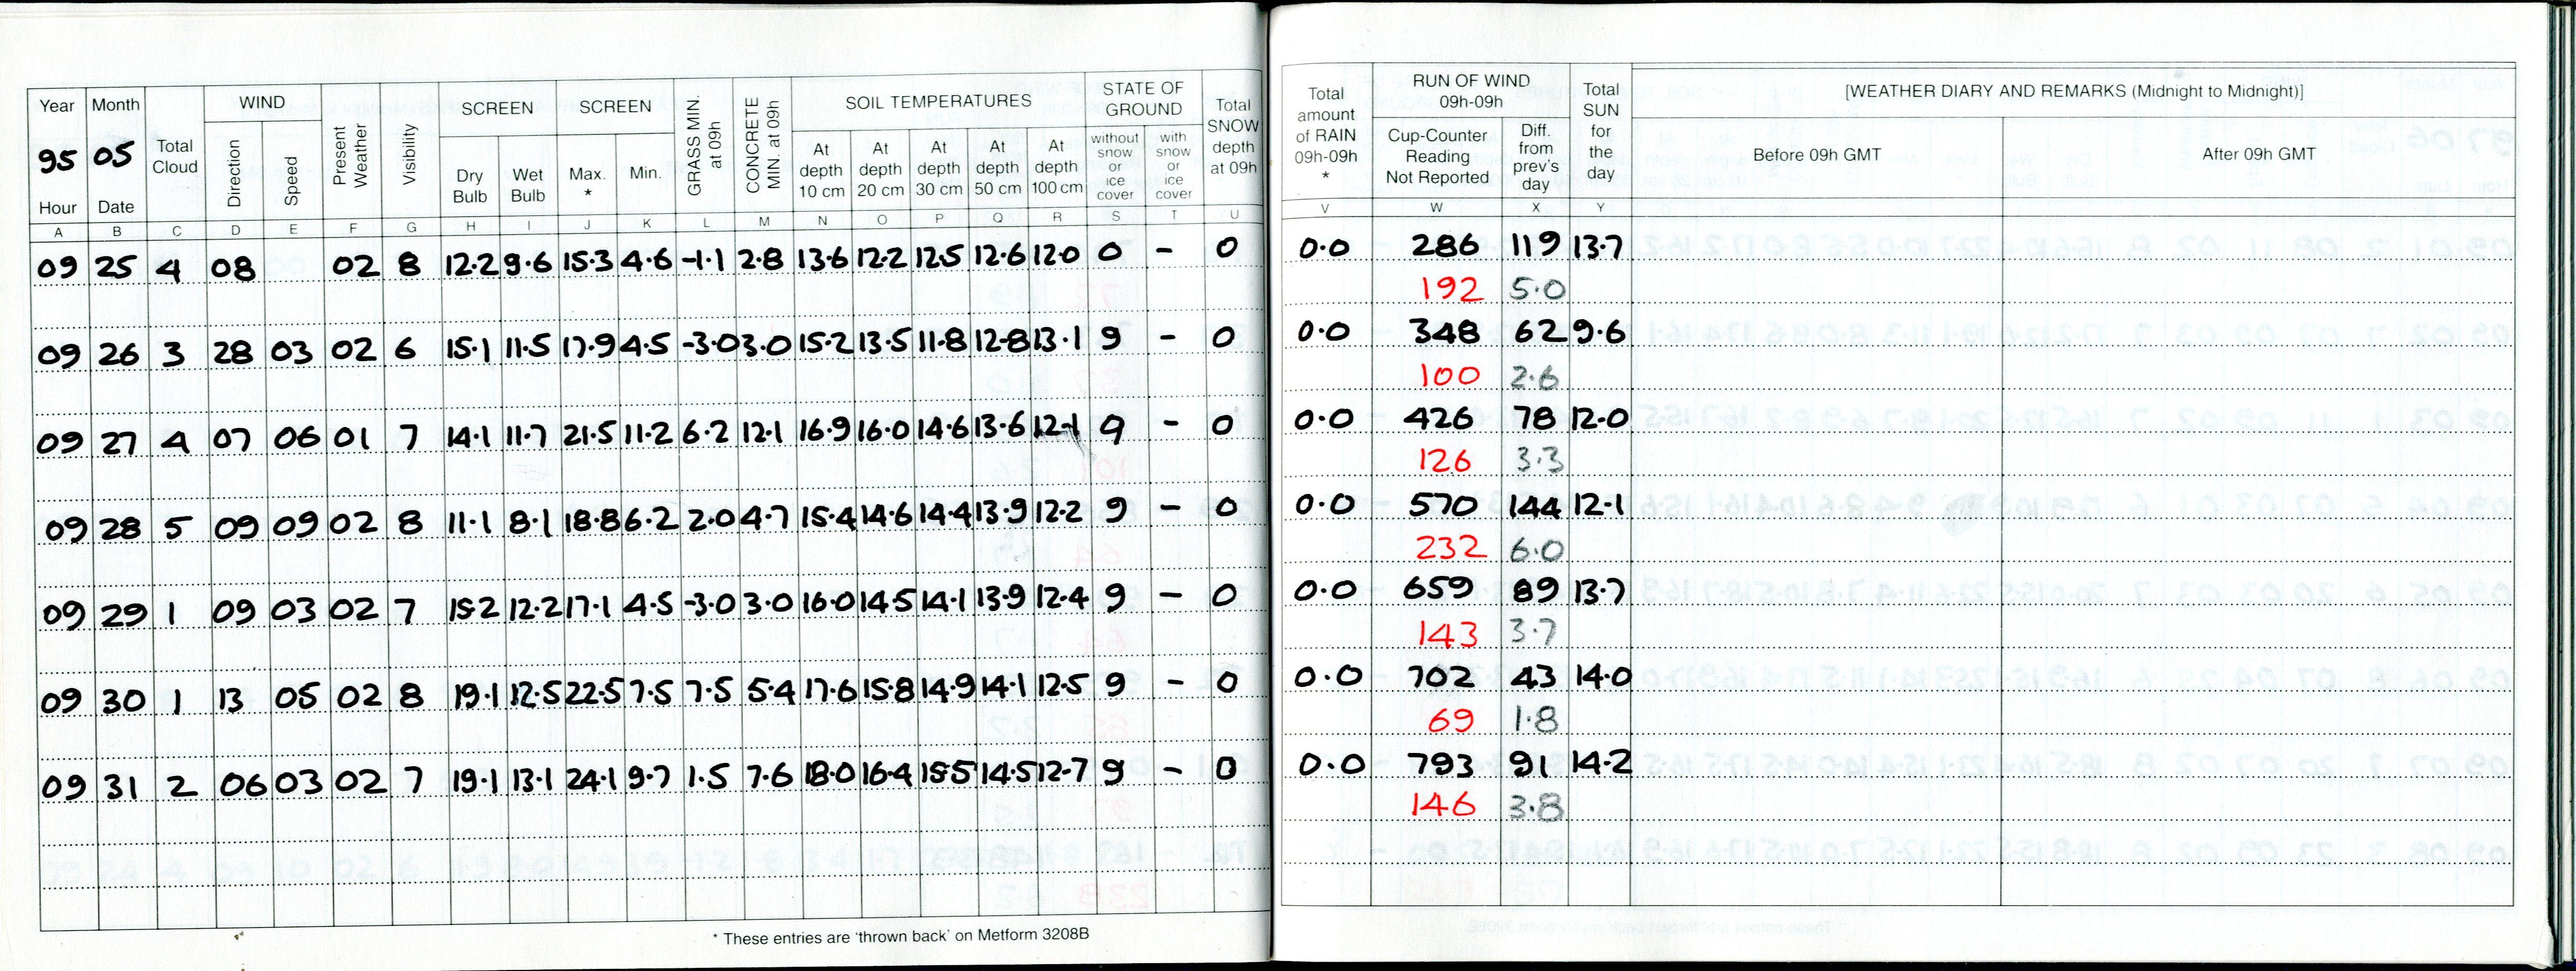 Year Month Total Cloud WIND Present Weather Visibility SCREEN SCREEN GRASS MIN. at 09h CONCRETE MIN. at 09h SOIL TEMPERATURES STATE OF GROUND Total SNOW depth at 09h
95 05 Direction Speed Dry Bulb Wet Bulb Max. * Min. At depth 10 cm At depth 20 cm At depth 30 cm At depth 50 cm At depth 100 cm without snow or ice cover with snow or ice cover
Hour Date
A B C D E F G H I J K L M N O P Q R S T U
09 25 4 08 02 8 12.2 9.6 15.3 4.6 -1.1 2.8 13.6 12.2 12.5 12.6 12.0 0 - 0
09 26 3 28 03 02 6 15.1 11.5 17.9 4.5 -3.0 3.0 15.2 13.5 11.8 12.8 13.1 9 - 0
09 27 4 07 06 01 7 14.1 11.7 21.5 11.2 6.2 12.1 16.9 16.0 14.6 13.6 12.1 9 - 0
09 28 5 09 09 02 8 11.1 8.1 18.8 6.2 2.0 4.7 15.4 14.6 14.4 13.9 12.2 9 - 0
09 29 1 09 03 02 7 15.2 12.2 17.1 4.5 -3.0 3.0 16.0 14.5 14.1 13.9 12.4 9 - 0
09 30 1 13 05 02 8 19.1 12.5 22.5 7.5 7.5 5.4 17.6 15.8 14.9 14.1 12.5 9 - 0
09 31 2 06 03 02 7 19.1 13.1 24.1 9.7 1.5 7.6 18.0 16.4 15.5 14.5 12.7 9 - 0
* These entries are 'thrown back' on Metform 3208B
Total amount of RAIN 09h-09h * RUN OF WIND 09h-09h Total SUN for the day [WEATHER DIARY AND REMARKS (Midnight to Midnight)]
Cup-Counter Reading Not Reported Diff. from prev's day Before 09h GMT After 09h GMT
V W X Y
0.0 286 119 13.7
192 5.0
0.0 348 62 9.6
100 2.6
0.0 426 78 12.0
126 3.3
0.0 570 144 12.1
232 6.0
0.0 659 89 13.7
143 3.7
0.0 702 43 14.0
69 1.8
0.0 793 91 14.2
146 3.8